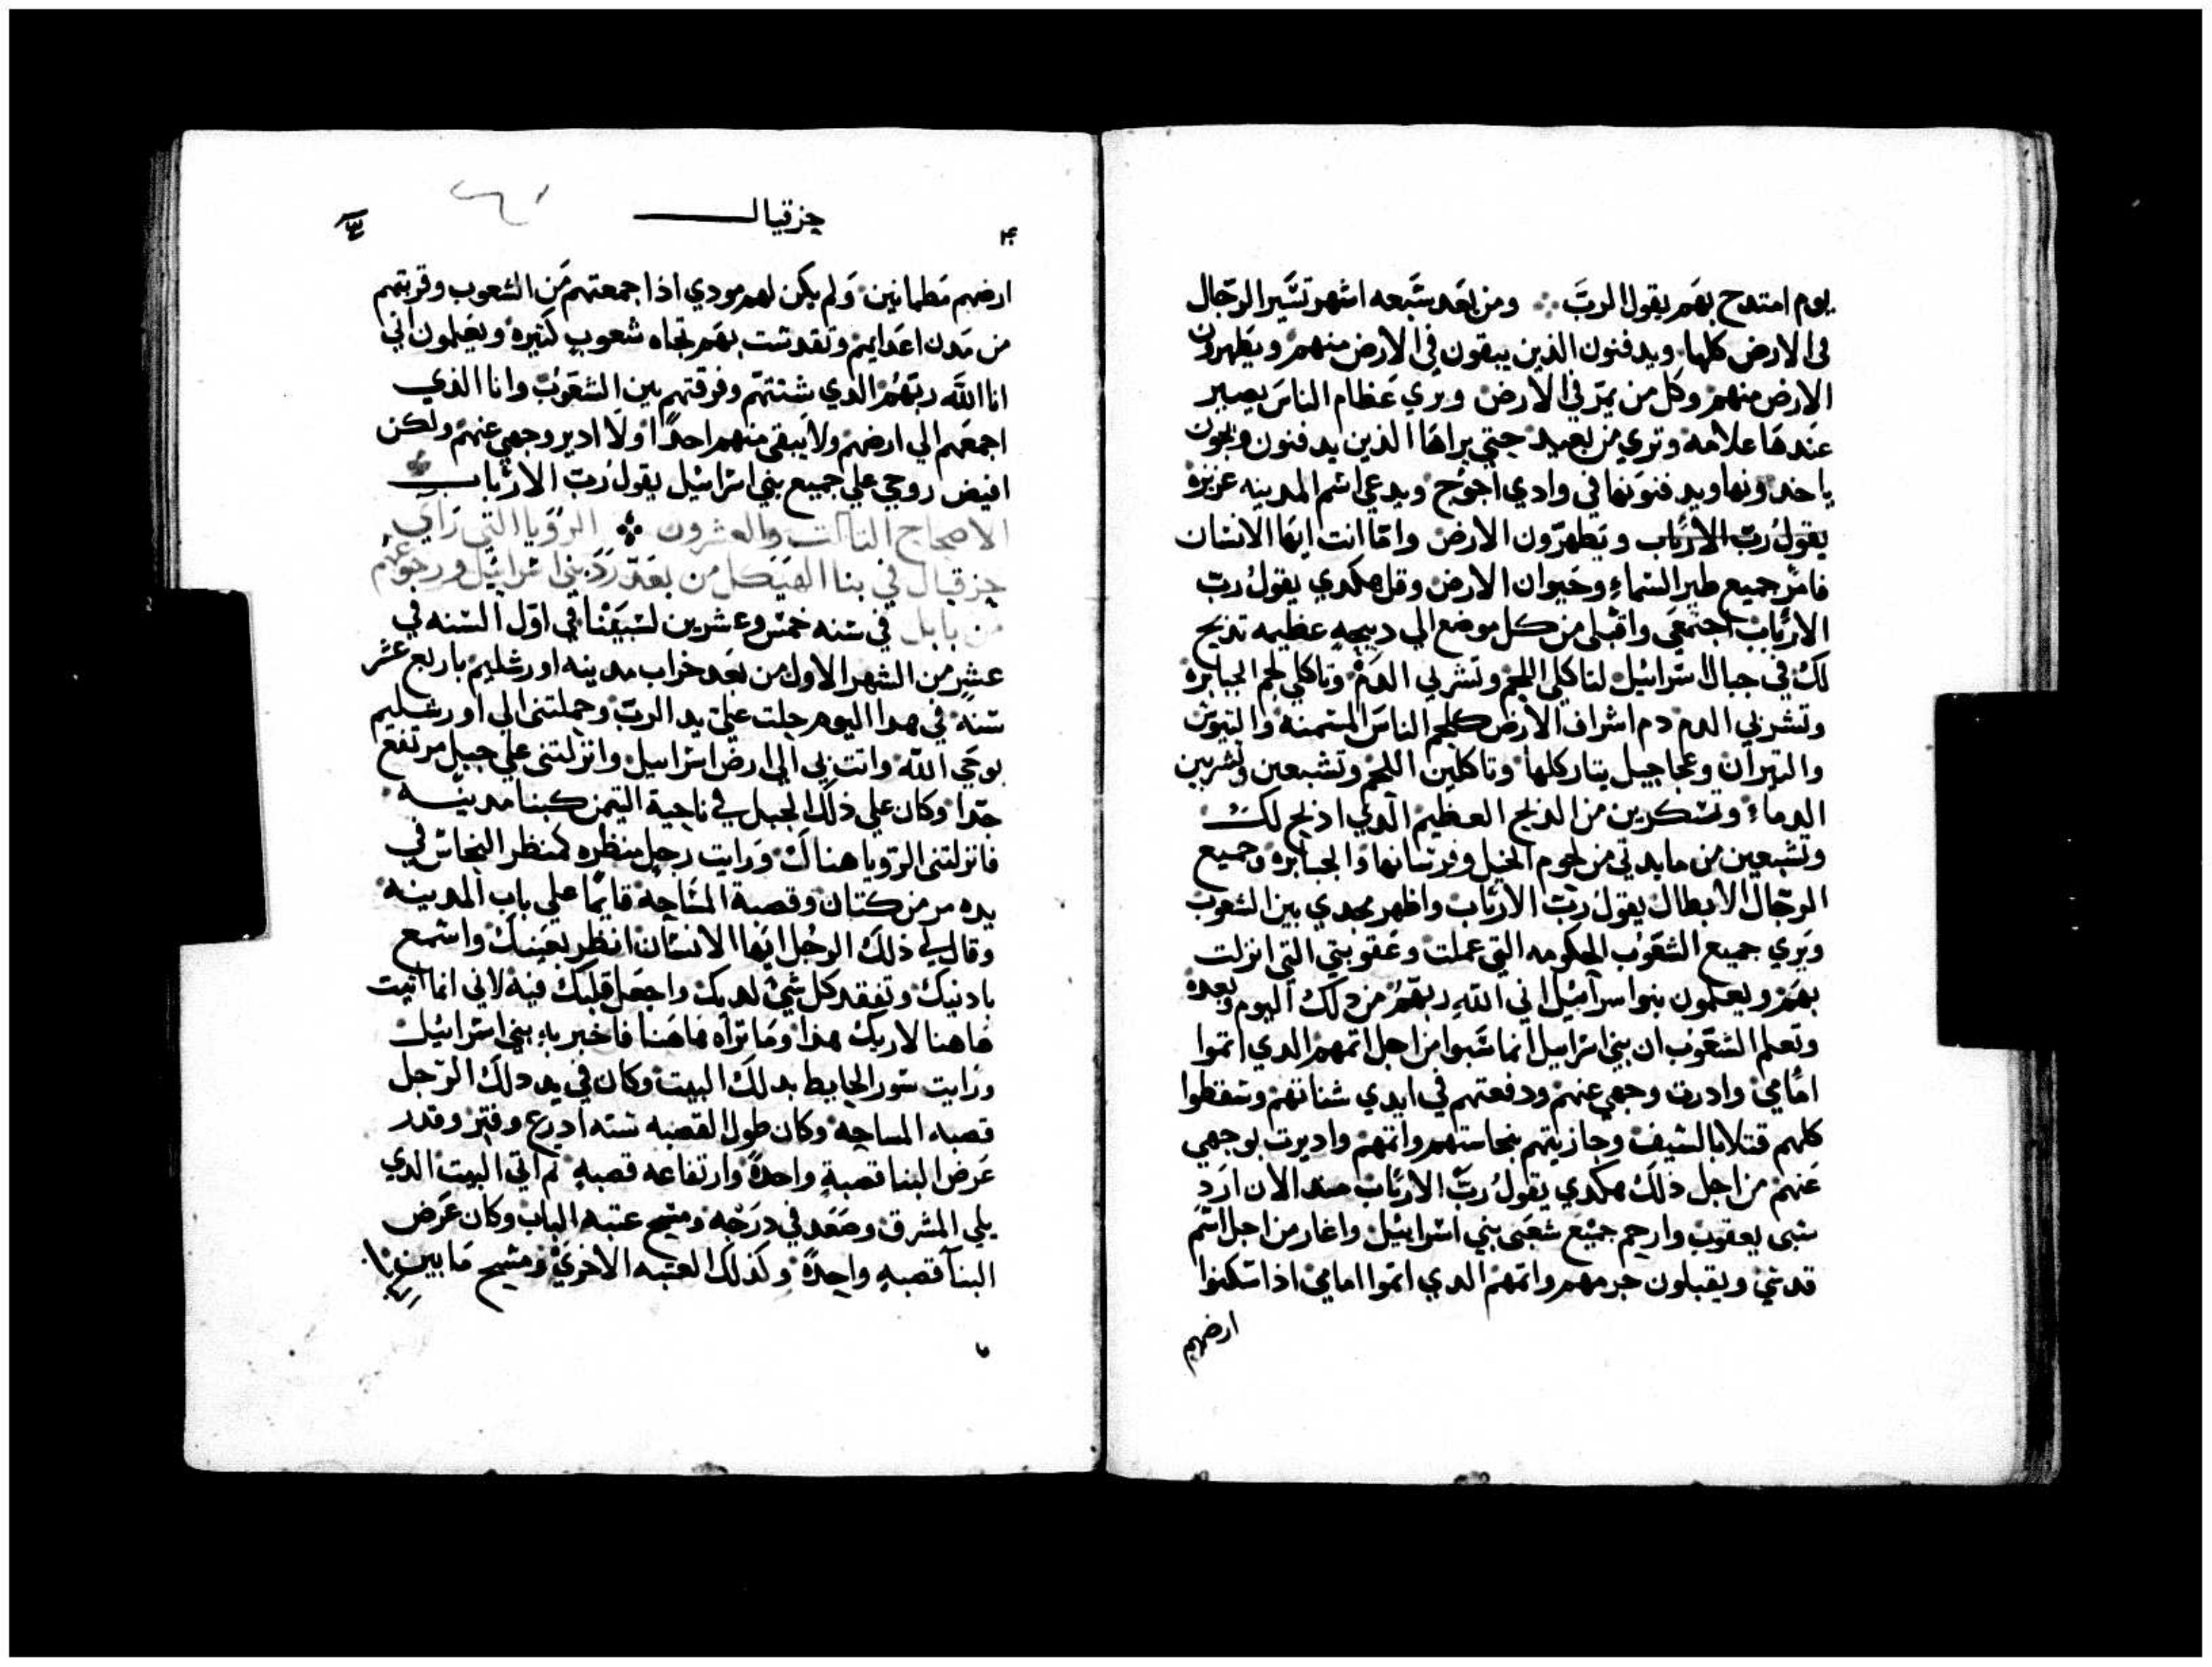 يوم امتدح بهم يقول الرب ومن بعد سبعه اشهر تسير الرجال
في الارض كلها ويدفنون الذين يبقون في الارض منهم ويطهرون
الارض منهم وكل من يمر في الارض ويري عظام الناس يصير
عندها علامه وتري من بعيد حتي يراها الذين يدفنون
ياخدونها ويدفنونها في وادي اجوج ويدعي اسم المدينه عزيزه
يقول رب الارباب ويطهرون الارض واما انت ايها الانسان
فامر جميع طير السماء وحيوان الارض وقل هكدي يقول رب
الارباب اجتمعي واقبلي من كل موضع الي دبيحه عظيمه تدبح
لك في جبال اسرائيل لتاكلي اللحم وتشربي الدم وتاكلي لحم الجبابره
وتشربي الدم دم اشراف الارض كلحم الناس المسمنه والتيوس
والتيران وعجاجيل يتار كلها وتاكلين اللحم وتشبعين وتشربين
الدماء وتسكرين من الدبح العظيم الدي ادبح لك
وتشبعين من مايدتي من لحوم الخيل وفرسانها والجبابره وجميع
الرجال الابطال يقول رب الارباب واظهر مجدي بين الشعوب
ويري جميع الشعوب الحكومه التي عملت وعقوبتي التي انزلت
بهم ويعلمون بنوا اسرائيل اني الله ربهم من دلك اليوم وبعده
وتعلم الشعوب ان بني اسراييل انما سبوا من اجل اتمهم الدي اتموا
امامي وادرت وجهي عنهم ودفعتهم في ايدي شناتهم وسقطوا
كلهم قتلا بالسيف وجازيتهم بنجاستهم واتمهم واديرت بوجهي
عنهم من اجل ذلك هكدي يقول رب الارباب مند الان ارد
سبى يعقوب وارحم جميع شعبى بني اسرائيل واغار من اجل اسم
قدسي ويقبلون جرمهم واتمهم الدي اتموا امامي اذا سكنوا
ارضهم
حزقيال
ارضهم مطمانين ولم يكن لهم مودي اذا جمعتهم من الشعوب وقربتهم
من مدن اعدايهم وتقدست بهم تجاه شعوب كثيره ويعلمون اني
انا الله ربهم الدي شتتهم وفرقتهم بين الشعوب وانا الذي
اجمعهم الي ارضهم ولا يبقي منهم احدا ولا ادير وجهي عنهم ولكن
افيض روحي علي جميع بني اسرائيل يقول رب الارباب
الاصحاح الثالت والعشرون الرويا التي راي
حزقيال في بنا الهيكل من بعد رد بني اسرائيل ورجوعهم
من بابل في سنه خمس وعشرين لسبينا في اول السنه في
عشر من الشهر الاول من بعد خراب مدينه اورشليم باربع عشر
سنه في هدا اليوم حلت علي يد الرب وحملتني الي اورشليم
بوحي الله واتت بي الي ارض اسراييل وانزلتني علي جبل مرتفع
جدا وكان علي ذلك الجبل في ناحية التيمن كبنا مدينه
فانزلتني الرويا هناك ورايت رجل منظره كمنظر النحاس في
يده مر من كتان وقصبة المساحه قايما علي باب المدينه
وقال لي ذلك الرجل ايها الانسان انظر بعينك واسمع
بادنيك وتفقد كل شي لديك واجعل قلبك فيه لاني انما اتيت
هاهنا لاريك هدا وما تراه هاهنا فاخبر به بني اسرائيل
ورايت سور الحايط بدلك البيت وكان في يد دلك الرجل
قصبه المساحه وكان طول القصبه سته ادرع وفتر وقدر
عرض البنا قصبة واحدة وارتفاعه قصبه ثم اتي البيت الدي
يلي المشرق وصعد في درجه ومسح عتبه الباب وكان عرض
البنا قصبه واحدة وكذلك العتبه الاخري ومسح ما بين